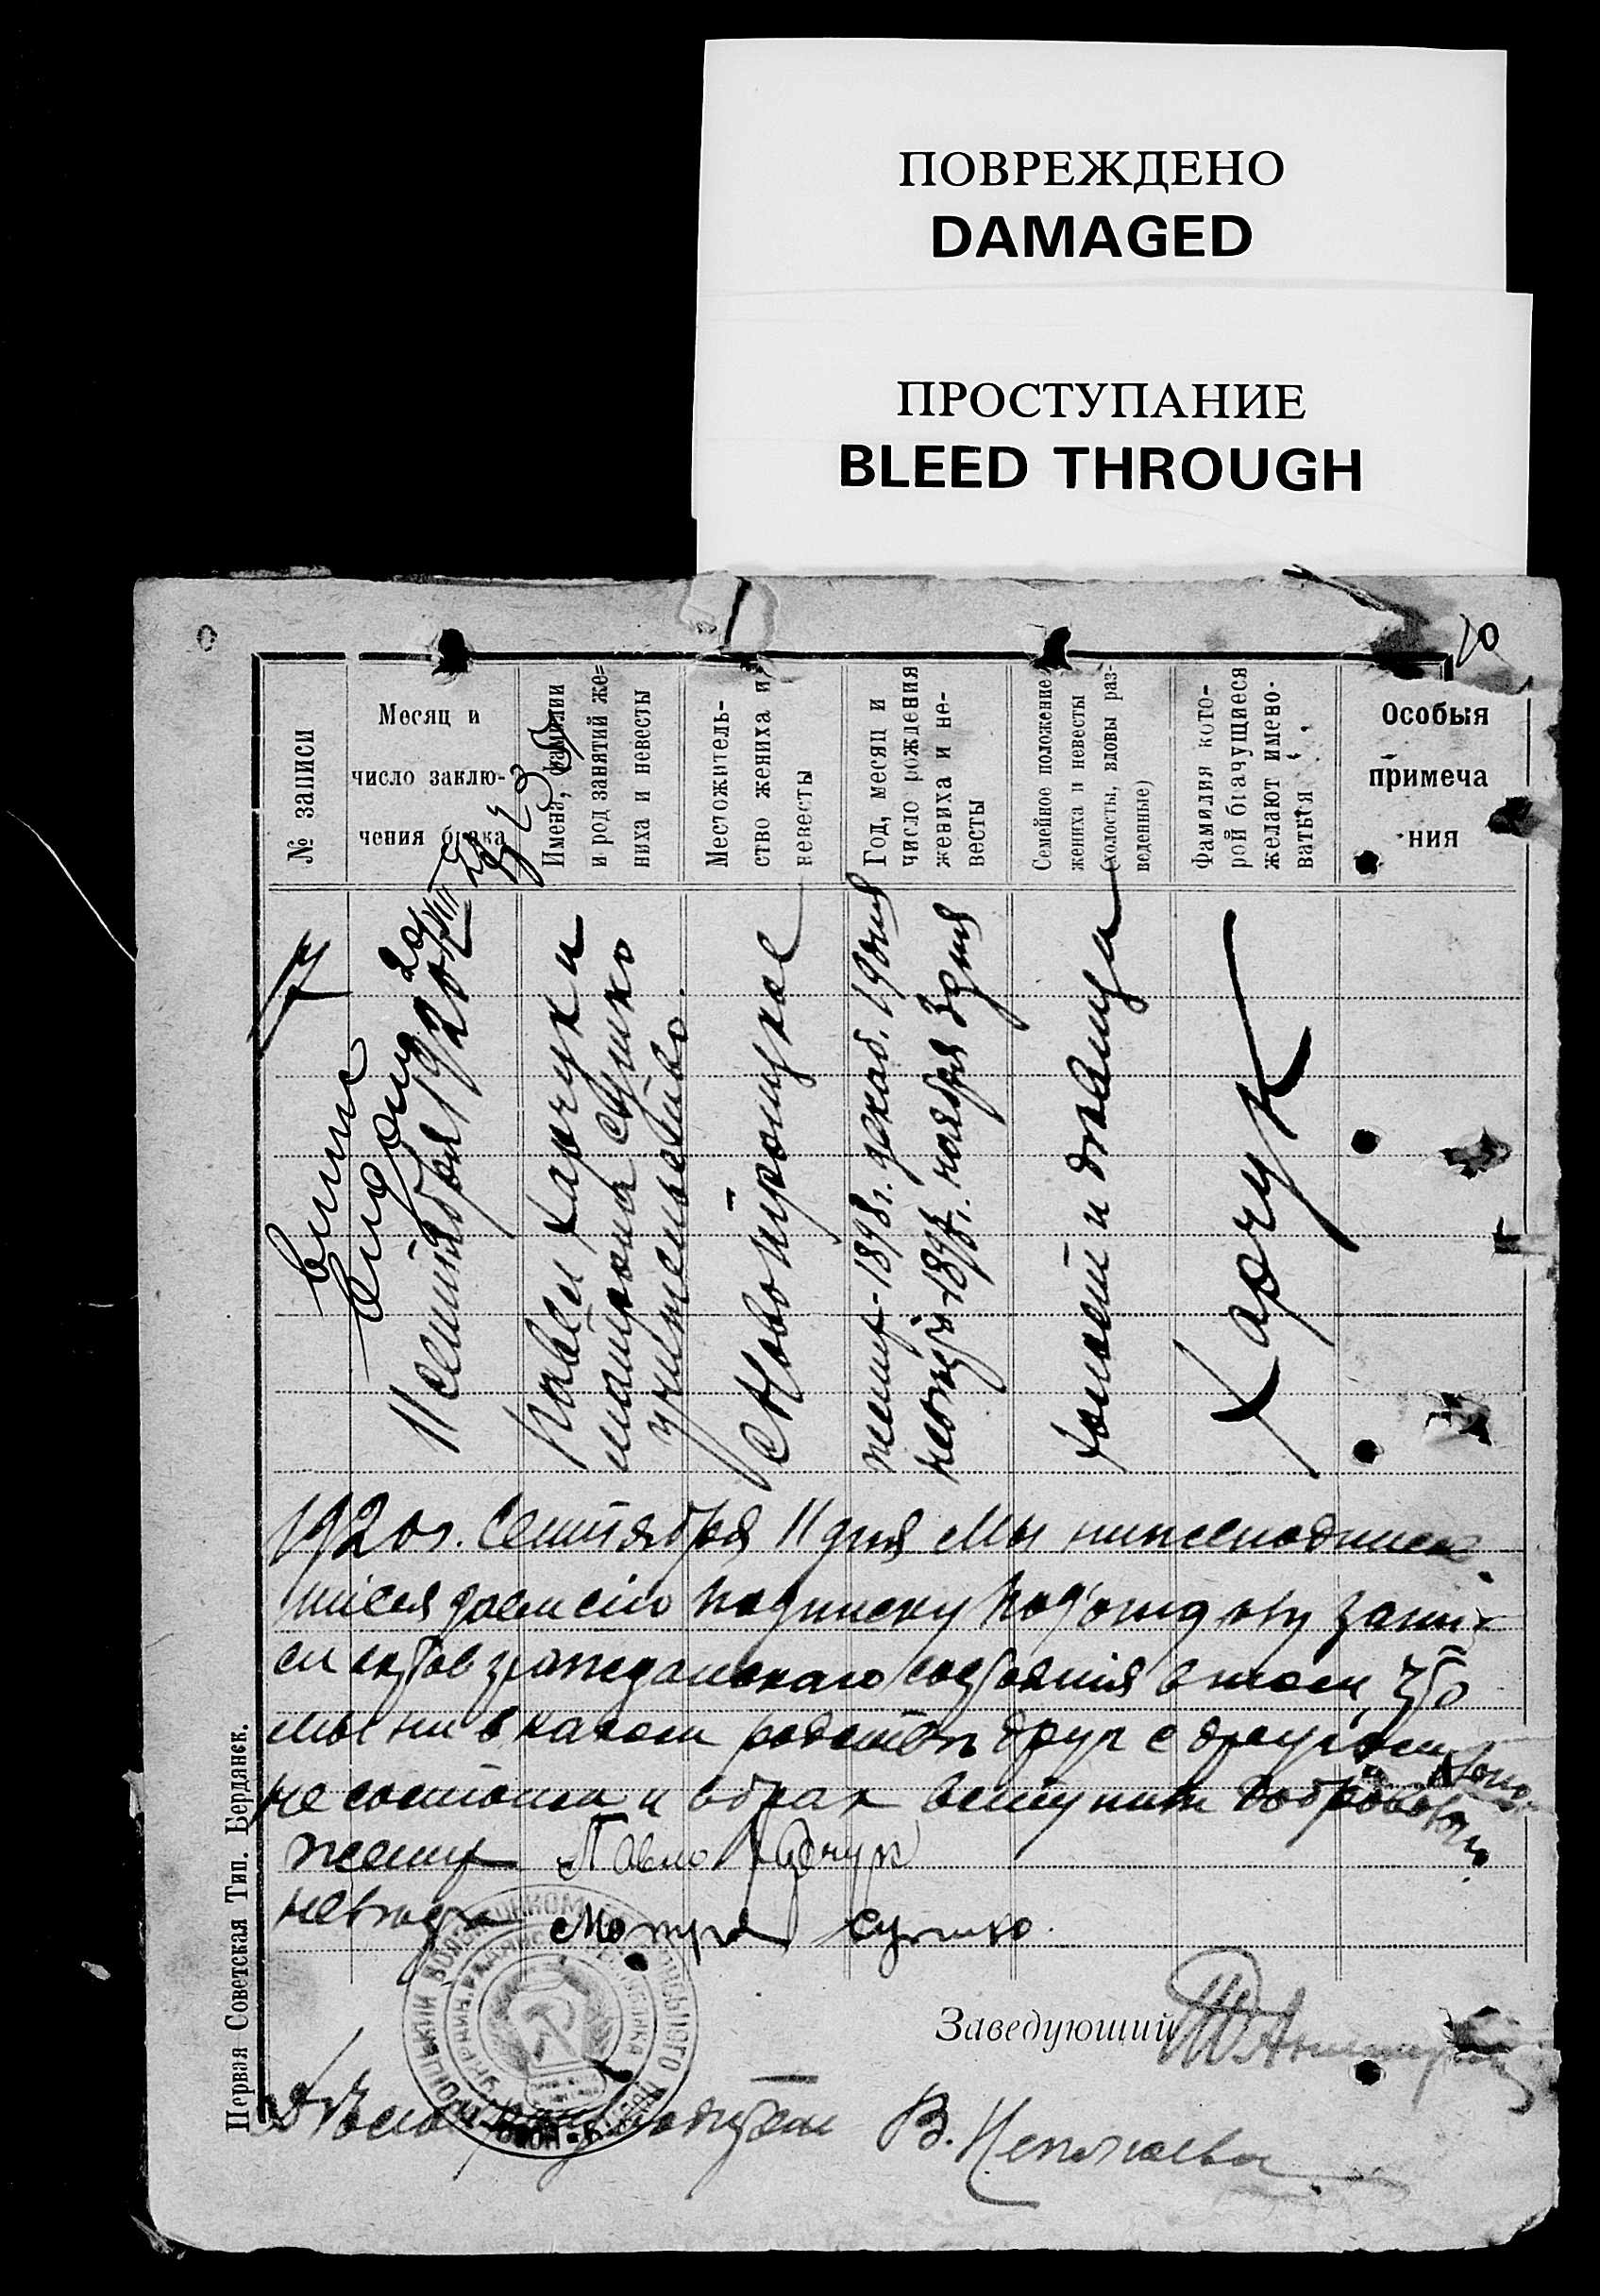 ПОВРЕЖДЕНО
DAMAGED
ПРОСТУПАНИЕ
BLEED THROUGH
10
№ записи
Месяц и
число заклю-
чения брака
Имена, фамилии
и род занятий же=
ниха и невесты
Местожитель-
ство жениха и
невесты
Год, месяц и
число рождения
жениха и не-
весты
Семейное положение
жениха и невесты
(холосты, вдовы раз-
веденные)
Фамилия кото-
рой брачущиеся
желают имено-
ваться
Особыя
примеча
ния
7
11 сентября 1920 г.
Павел Харчук и
Матрона Сушко
учительство.
С Новотроицкое
жених - 1898 г. декаб. 19 дня
невеста 1898 г. ноября 3 дня
холост и девица
Харчук
1920 г. Сентября 11 дня мы нижеподписав
шиеся даем сію подписку под'отделу запи-
си актов гражданскаго состоянія в том, что
мы ни в каком родстве друг с другом
не состоим и в брак вступили добровольно
жених Павло Харчук
невеста Мотря Сушко.
Заведующий
Делопроизводитель В.
Первая Советская Тип. Бердянск.